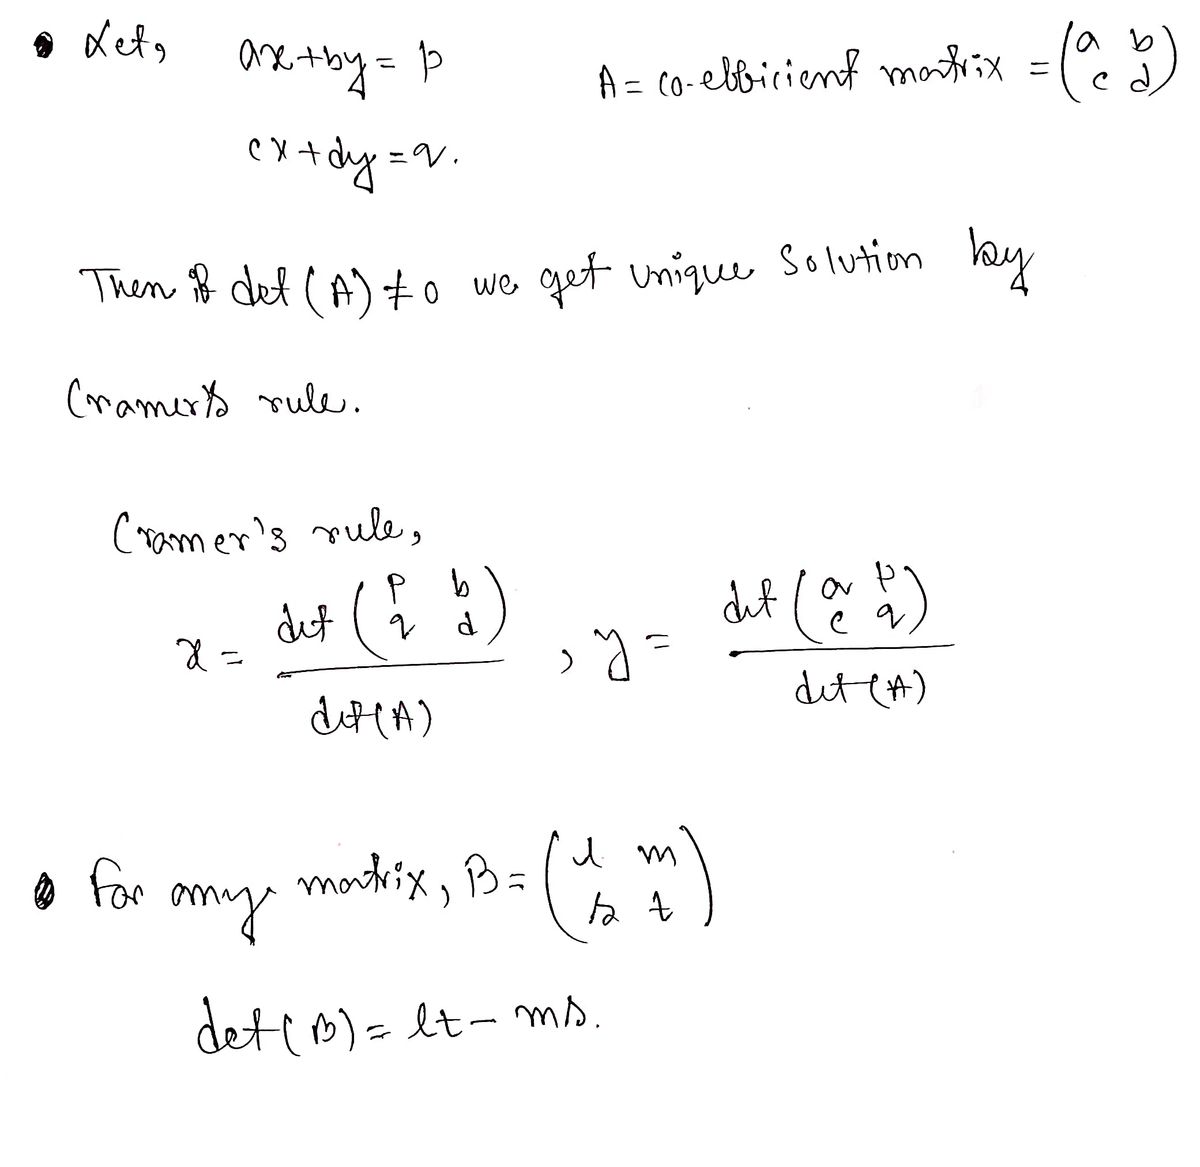 • Let, ax+by = p A = co-efficient matrix = (a b
c d)
cx+dy = q.
Then if det (A) ≠ 0 we get unique solution by
Cramer's rule.
Cramer's rule,
x = det (p b
q d) / det(A) , y = det (a p
c q) / det(A)
• For any matrix, B = (l m
s t)
det(B) = lt - ms.